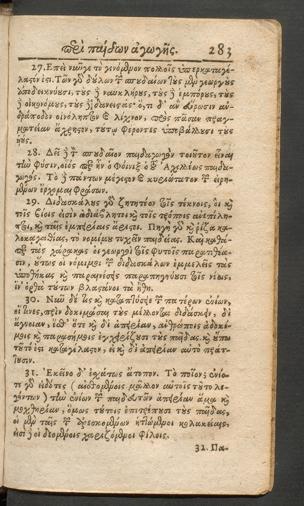 περὶ παίδων ἀγωγῆς. 283
27. Ἐπεὶ νῦν γε τὸ γινόμενον πολλοῖς ὑπερκαταγέ-
λαστόν ἐστι. Τῶν γὸ δούλων τ̃ σπουδαίων τοὺς μὲν γεωργοὺς
ἀποδεικνύουσι, τοὺς δ̓ ναυκλήρους, τοὺς δ̓ ἐμπόρους, τοὺς
δ̓ οἰκονόμους, τοὺς δ̓ δανειστάς· ὅ, τι δ᾽ ἂν εὕρωσιν ἀν-
δράποδον οἰνόληπτον καὶ λίχνον, πρὸς πᾶσαν πραγ-
ματείαν ἄχρηστον, τούτῳ φέροντες ὑποβάλλουσι τοὺς
υἱούς.
28. Δεῖ δ̓ τ̃ σπουδαῖον παιδαγωγὸν τοιοῦτον εἶναι
τὴν φύσιν, οἷός περ ἦν ὁ Φοῖνιξ ὁ τοῦ Ἀχιλλέως παιδα-
γωγός. Τὸ δ̓ πάντων μέγιστον καὶ κυριώτατον τ̃ εἰρη-
μένων ἔρχομαι φράσων.
29. Διδασκάλους γὸ ζητητέον τοῖς τέκνοις, οἳ καὶ
τοῖς βίοις εἰσὶν ἀδιάβλητοι καὶ τοῖς τρόποις ἀνεπίλη-
πτοι, καὶ ταῖς ἐμπειρίαις ἄριστοι. Πηγὴ γὸ καὶ ῥίζα κα-
λοκαγαθίας, τὸ νομίμου τυχεῖν παιδείας. Καὶ καθά-
περ τὰς χάρακας οἱ γεωργοὶ τοῖς φυτοῖς παρατιθέα-
σιν, οὕτως οἱ νόμιμοι τ̃ διδασκάλων ἐμμελεῖς τὰς
ὑποθήκας καὶ παραινέσεις παραπηγνύουσι τοῖς νέοις,
ἵν᾽ ὀρθὰ τούτων βλαστάνοι τὰ ἤθη.
30. Νῦν δέ τις καὶ καταπτύσειε τ̃ πατέρων ἐνίων,
οἵ τινες, πρὶν δοκιμάσαι τοὺς μέλλοντας διδάσκειν, δι᾽
ἄγνοιαν, ἔσθ᾽ ὅτε καὶ δι᾽ ἀπειρίαν, ἀνθρώποις ἀδοκί-
μοις καὶ παρασήμοις ἐγχειρίζουσι τοὺς παῖδας. καὶ οὔπω
τοῦτό ἐστι καταγέλαστον, εἰ καὶ δι᾽ ἀπειρίαν αὐτὸ πράτ-
τουσιν.
31. Ἐκεῖνο δ᾽ ἐσχάτως ἄτοπον. Τὸ ποῖον; ἐνίο-
τε γὸ εἰδότες (αἰσθομένοις μᾶλλον αὐτοῖς τοῦτο λε-
γόντων) τὴν ἐνίων τ̃ παιδευτῶν ἀπειρίαν ἅμα καὶ
μοχθηρίαν, ὅμως τούτοις ἐπιτρέπουσι τοὺς παῖδας,
οἱ μὲν ταῖς τ̃ ἀρεσκομένων ἡττώμενοι κολακείαις,
εἰσὶ δ̓ οἳ δεομένοις χαριζόμενοι φίλοις.
32. Πα-